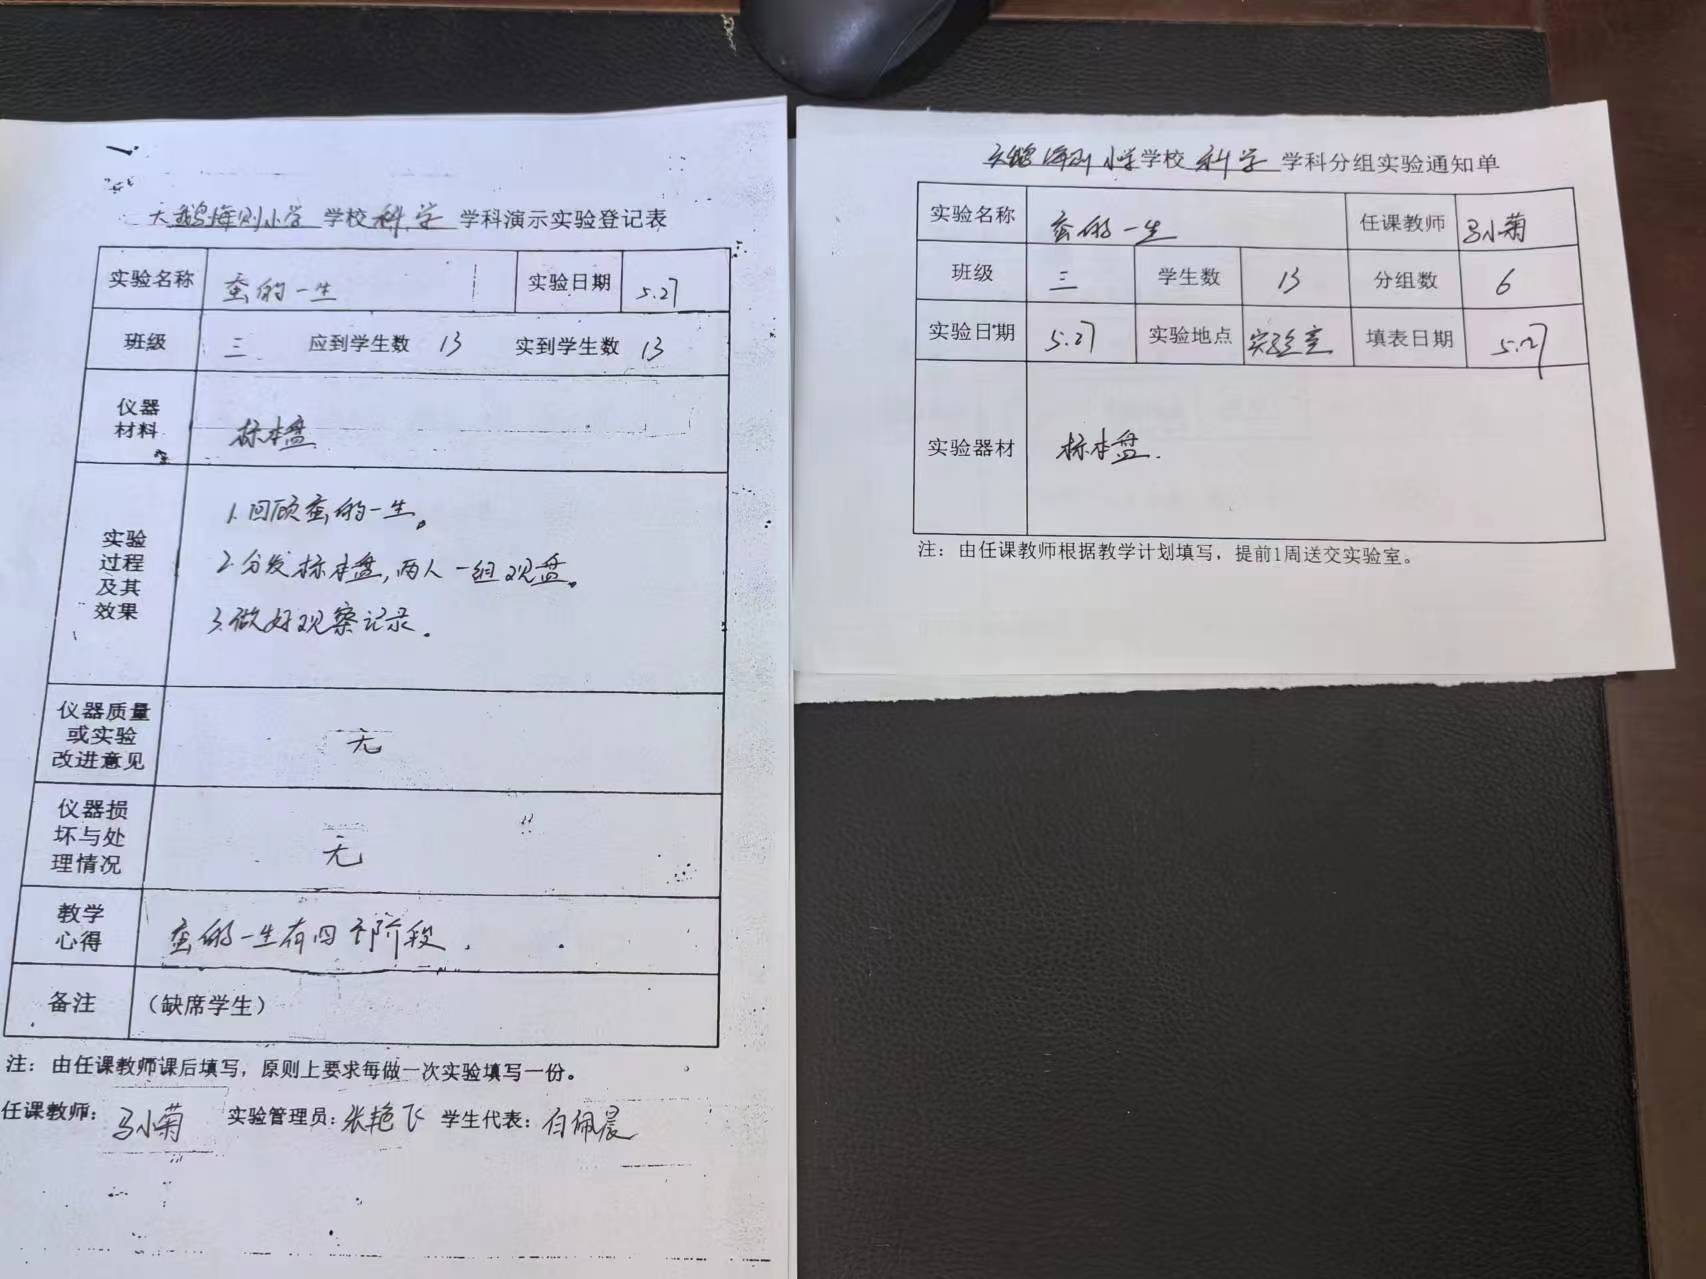 大鹅海则小学 学校 科学 学科演示实验登记表
实验名称 蚕的一生 实验日期 5.27
班级 三 应到学生数 13 实到学生数 13
仪器
材料
标本盘
实验
过程
及其
效果
1.回顾蚕的一生。
2.分发标本盘,两人一组观盘。
3.做好观察记录.
仪器质量
或实验
改进意见
无
仪器损
坏与处
理情况
无
教学
心得
蚕的一生有四个阶段.
备注 (缺席学生)
注: 由任课教师课后填写,原则上要求每做一次实验填写一份。
任课教师: 马小菊 实验管理员: 张艳飞 学生代表: 白佩晨
大鹅海则小学 学校 科学 学科分组实验通知单
实验名称 蚕的一生 任课教师 马小菊
班级 三 学生数 13 分组数 6
实验日期 5.27 实验地点 实验室 填表日期 5.27
实验器材 标本盘.
注: 由任课教师根据教学计划填写,提前1周送交实验室。